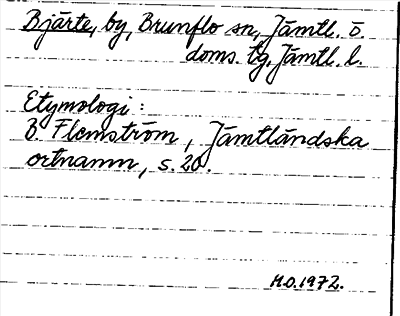 Bjärte, by, Brunflo sn, Jämtl. ö.
doms. tg, Jämtl. l.
Etymologi:
B. Flemström, Jämtländska
ortnamn, s. 20.
H.O. 1972.